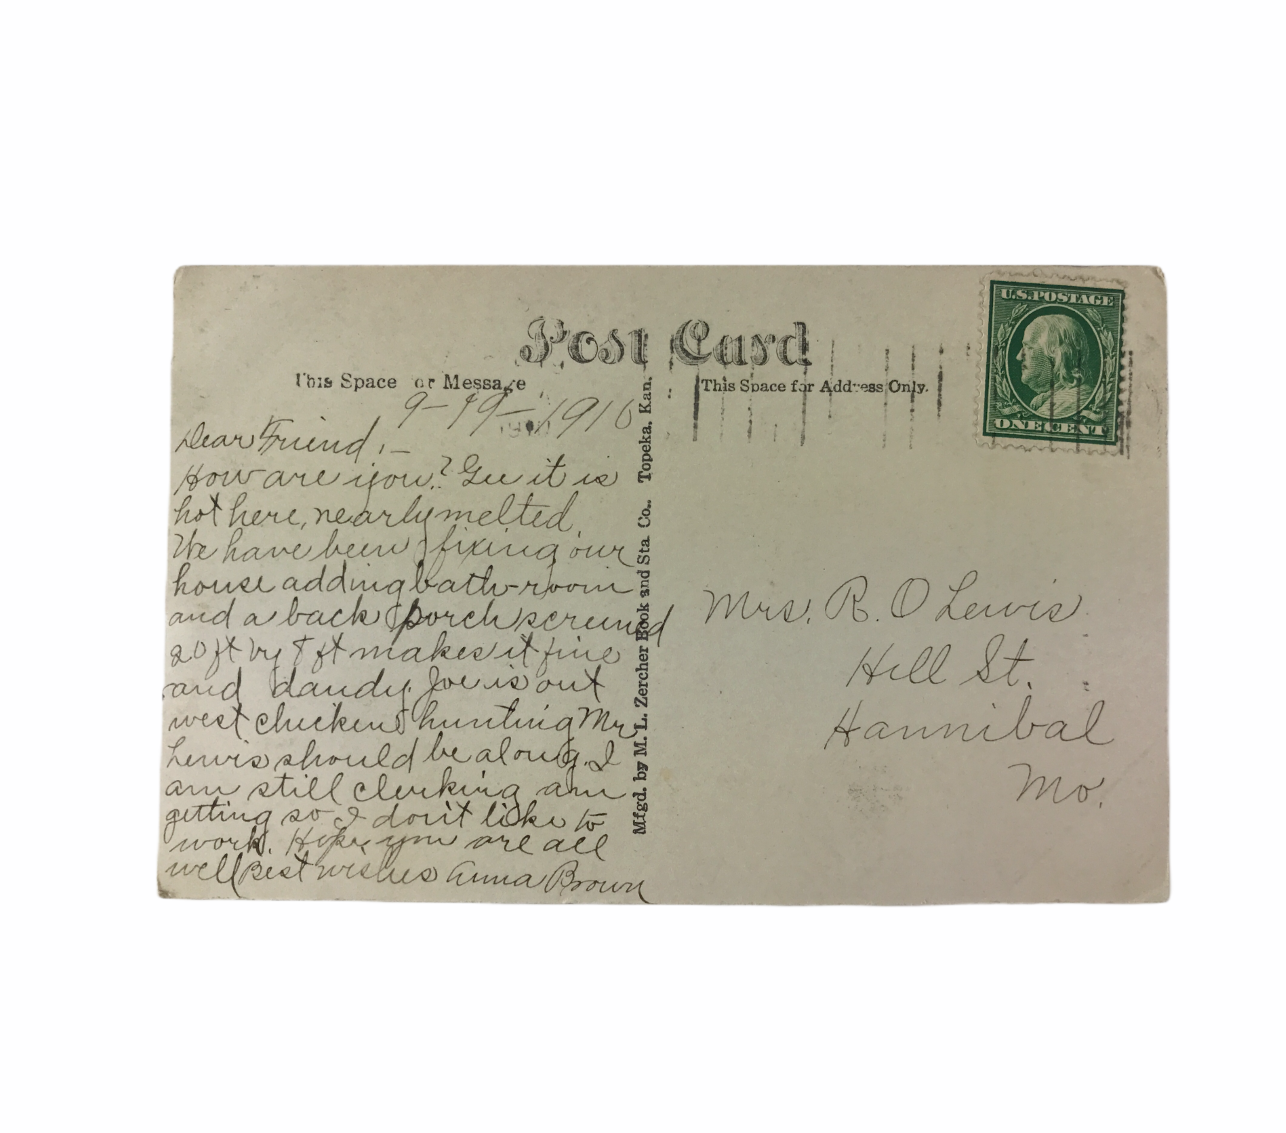 Post Card
This Space or Message
This Space for Address Only.
U.S. POSTAGE
ONE CENT
9-19-1910
Dear Friend,-
How are you? Gee it is
hot here, nearly melted.
We have been fixing our
house adding bath-room
and a back porch screened
20 ft by 8 ft makes it fine
and dandy. Joe is out
west chicken hunting Mr
Lewis should be along. I
am still clerking am
getting so I don't like to
work. Hope you are all
well Best wishes Anna Brown
Mfgd. by M. L. Zercher Book and Sta. Co., Topeka, Kan.
Mrs. R. O Lewis
Hill St.
Hannibal
Mo.